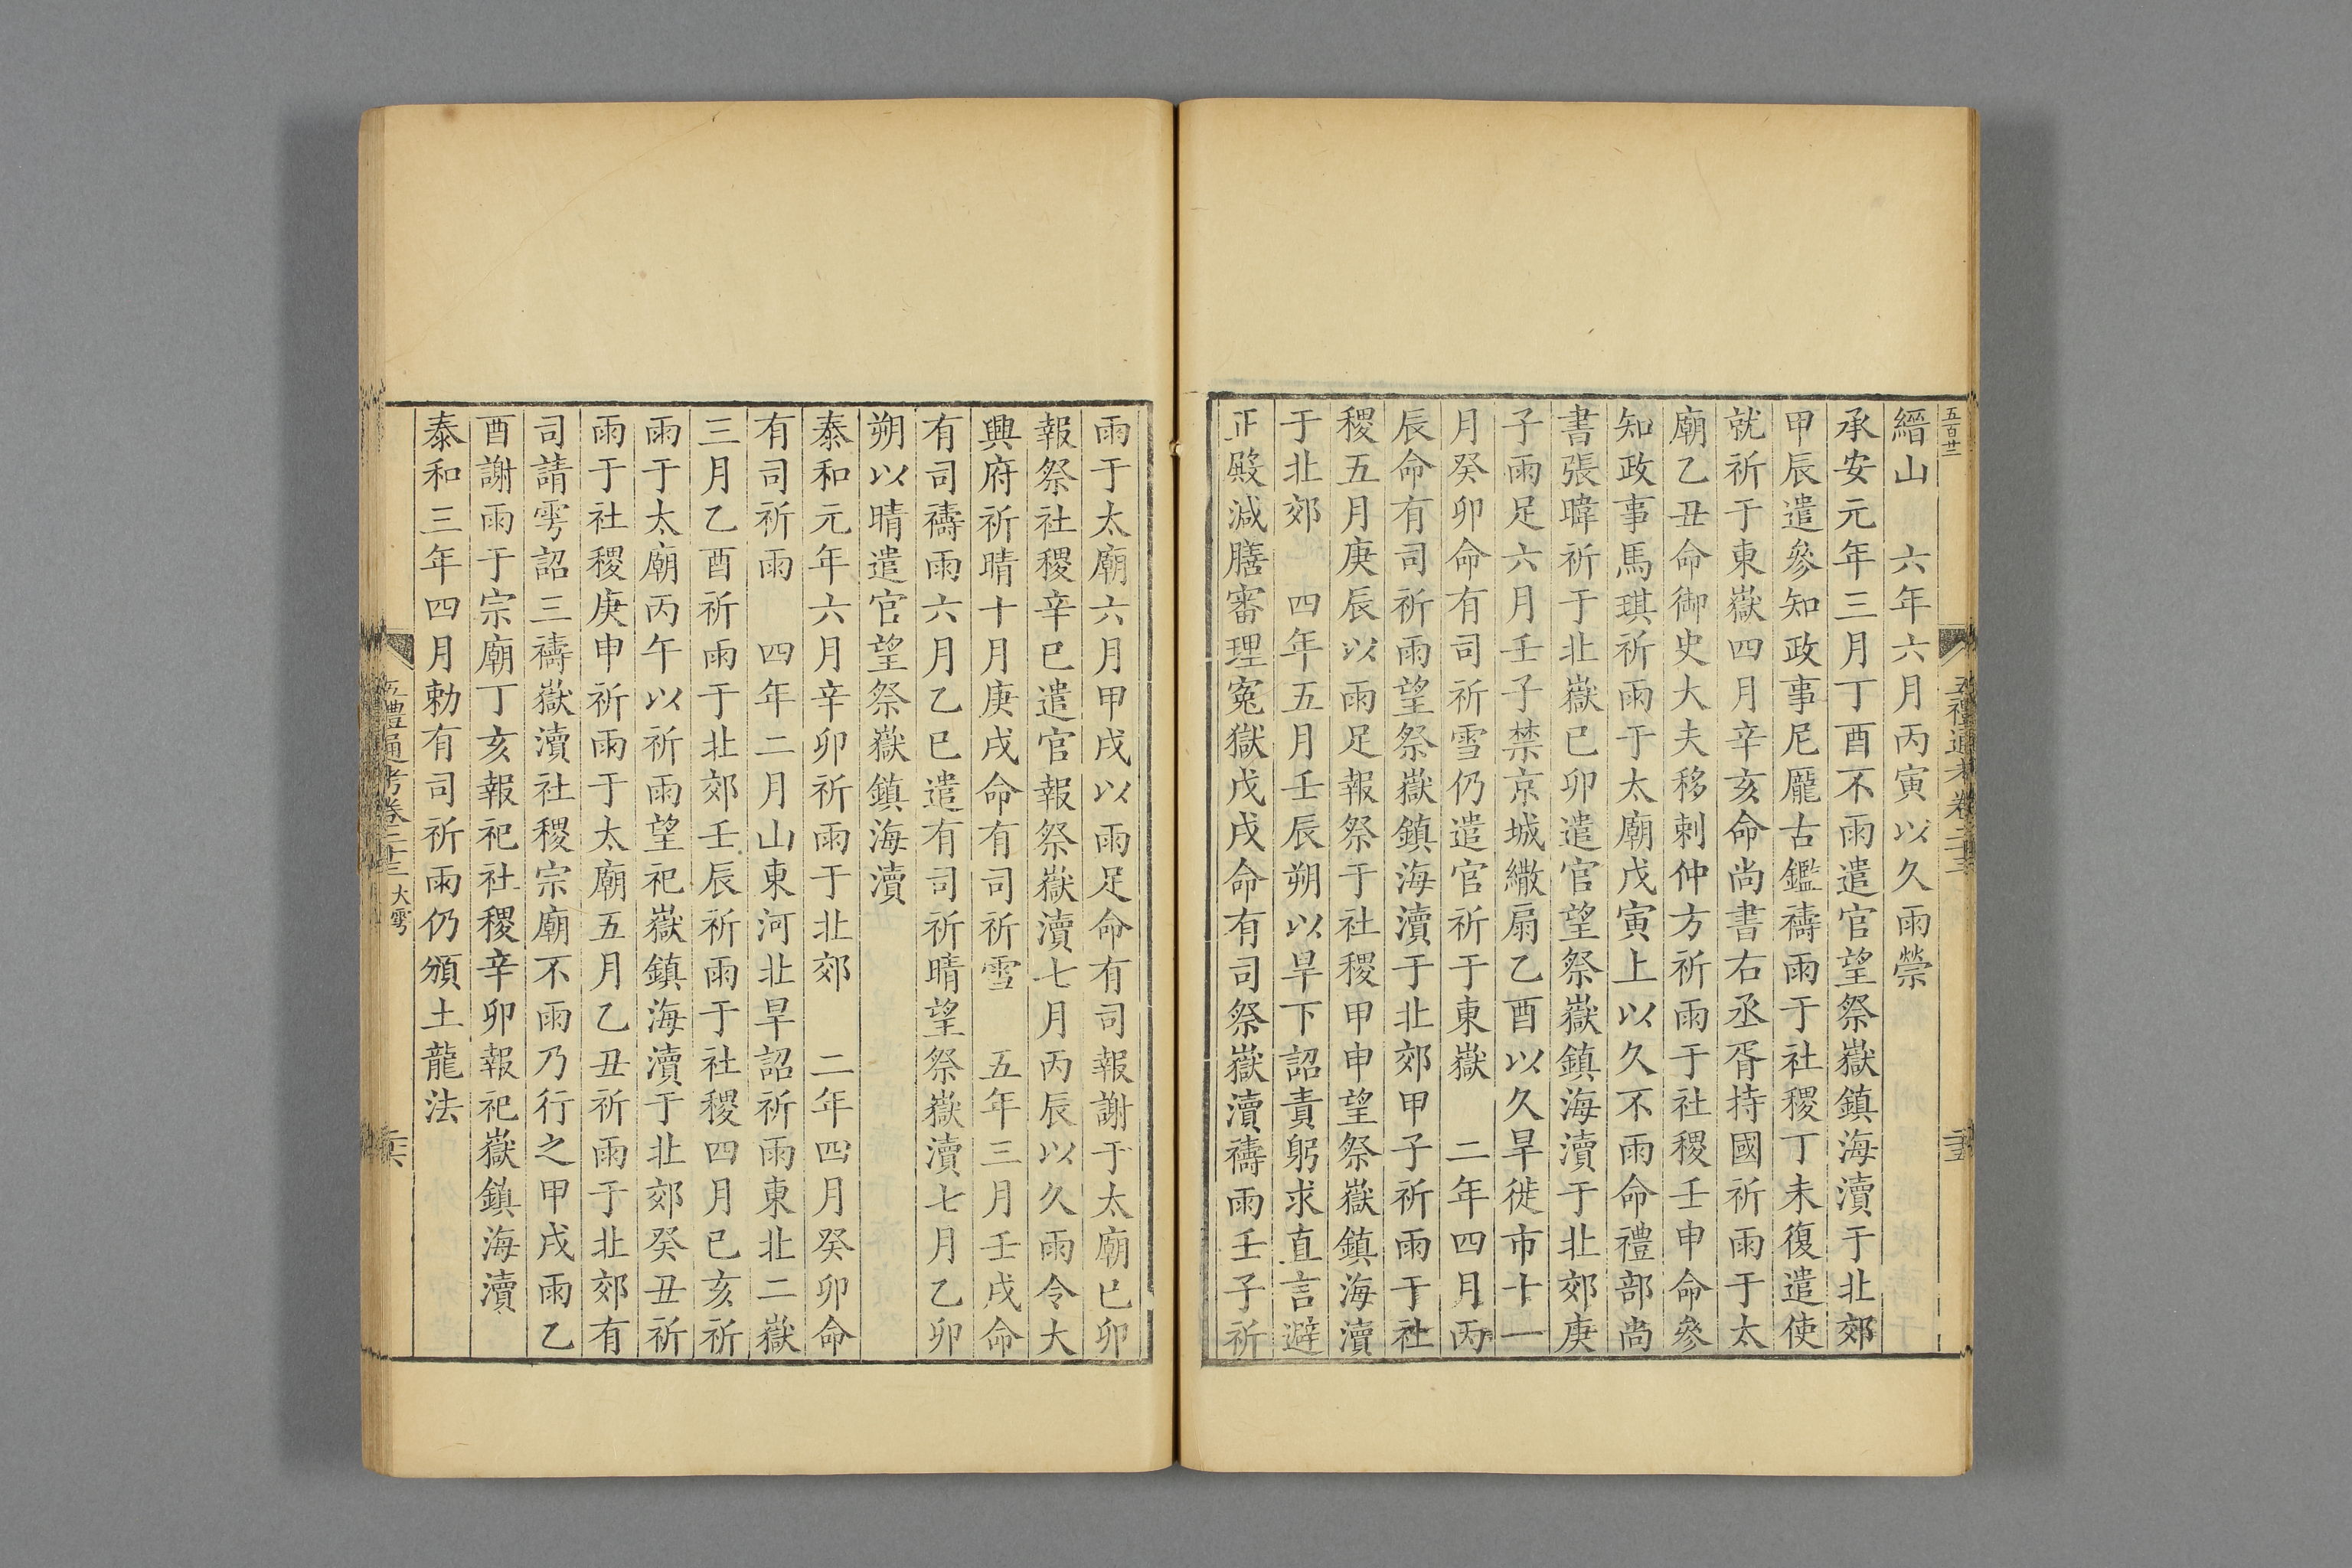 五百廿二
五禮通考卷二十二
二十五
縉山　六年六月丙寅以久雨禜
承安元年三月丁酉不雨遣官望祭嶽鎮海瀆于北郊
甲辰遣參知政事尼厖古鑑禱雨于社稷丁未復遣使
就祈于東嶽四月辛亥命尚書右丞胥持國祈雨于太
廟乙丑命御史大夫移剌仲方祈雨于社稷壬申命參
知政事馬琪祈雨于太廟戊寅上以久不雨命禮部尚
書張暐祈于北嶽己卯遣官望祭嶽鎮海瀆于北郊庚
子雨足六月壬子禁京城繖扇乙酉以久旱徙市十一
月癸卯命有司祈雪仍遣官祈于東嶽　二年四月丙
辰命有司祈雨望祭嶽鎮海瀆于北郊甲子祈雨于社
稷五月庚辰以雨足報祭于社稷甲申望祭嶽鎮海瀆
于北郊　四年五月壬辰朔以旱下詔責躬求直言避
正殿減膳審理冤獄戊戌命有司祭嶽瀆禱雨壬子祈
雨于太廟六月甲戌以雨足命有司報謝于太廟已卯
報祭社稷辛巳遣官報祭嶽瀆七月丙辰以久雨令大
興府祈晴十月庚戌命有司祈雪　五年三月壬戌命
有司禱雨六月乙巳遣有司祈晴望祭嶽瀆七月乙卯
朔以晴遣官望祭嶽鎮海瀆
泰和元年六月辛卯祈雨于北郊　二年四月癸卯命
有司祈雨　四年二月山東河北旱詔祈雨東北二嶽
三月乙酉祈雨于北郊壬辰祈雨于社稷四月己亥祈
雨于太廟丙午以祈雨望祀嶽鎮海瀆于北郊癸丑祈
雨于社稷庚申祈雨于太廟五月乙丑祈雨于北郊有
司請雩詔三禱嶽瀆社稷宗廟不雨乃行之甲戌雨乙
酉謝雨于宗廟丁亥報祀社稷辛卯報祀嶽鎮海瀆
泰和三年四月勅有司祈雨仍頒土龍法
五禮通考卷二十二　大雩
二十六